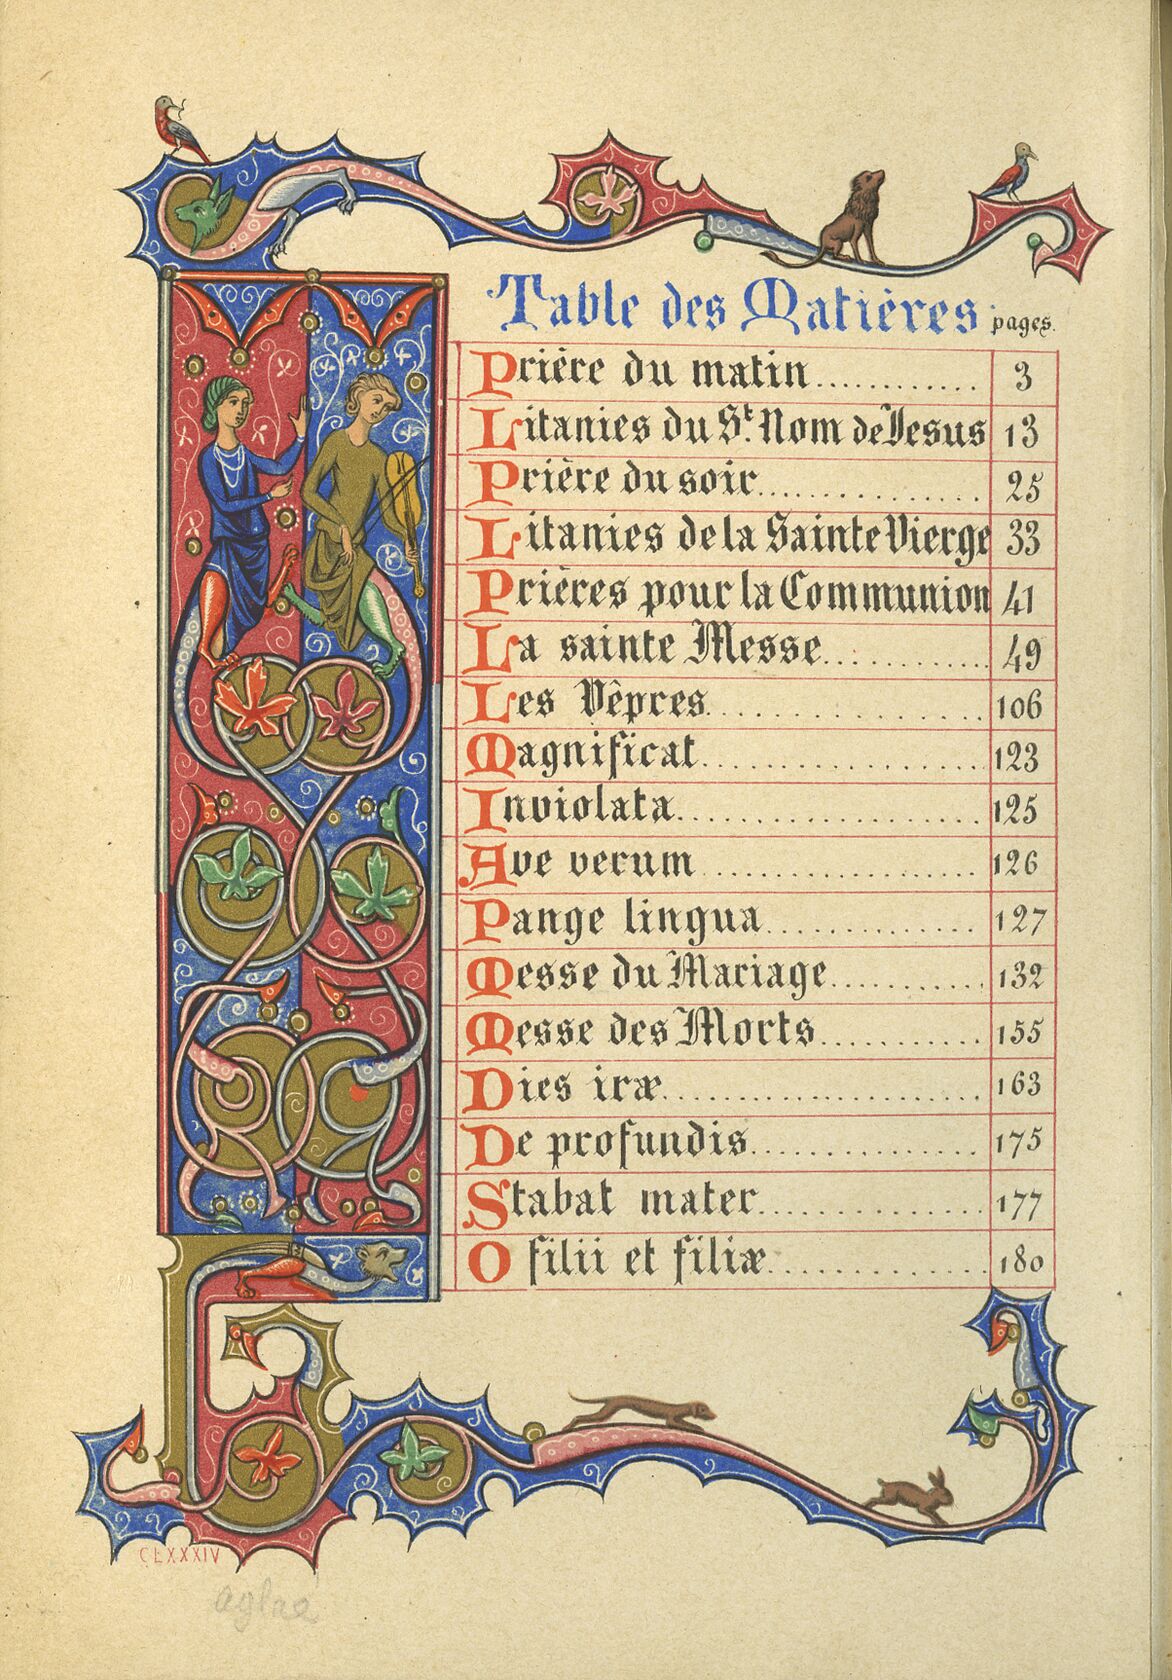 Table des Matières pages.
Prière du matin............ 3
Litanies du St. Nom de Jesus 13
Prière du soir................ 25
Litanies de la Sainte Vierge 33
Prières pour la Communion 41
La sainte Messe............ 49
Les Vêpres................... 106
Magnificat................... 123
Inviolata..................... 125
Ave verum................... 126
Pange lingua............... 127
Messe du Mariage........... 132
Messe des Morts............ 155
Dies iræ...................... 163
De profundis................ 175
Stabat mater................ 177
O filii et filiæ............... 180
CLXXXIV
aglae